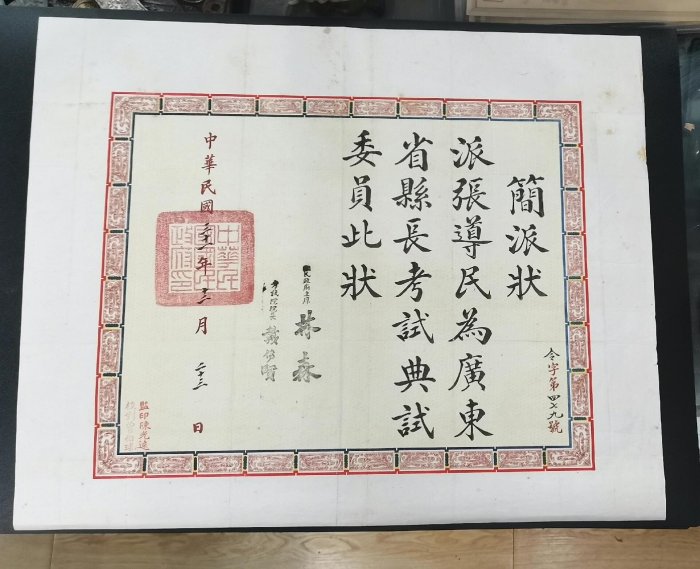 簡派狀
派張導民為廣東
省縣長考試典試
委員此狀
令字第四七九號
民政府主席 林森
考試院院長 戴傳賢
中華民國 年 月二十三日
中華民國國民政府印
監印陳光遠